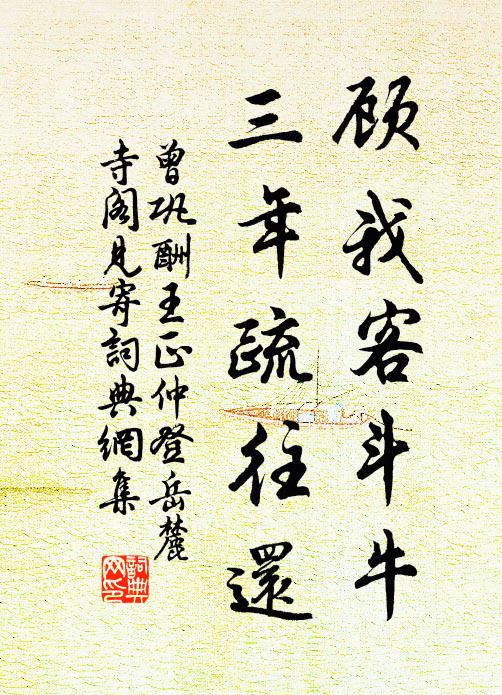 顾我客斗牛
三年疏往還
曾巩酬王正仲登岳麓
寺阁見寄詞典網集
詞典
网印